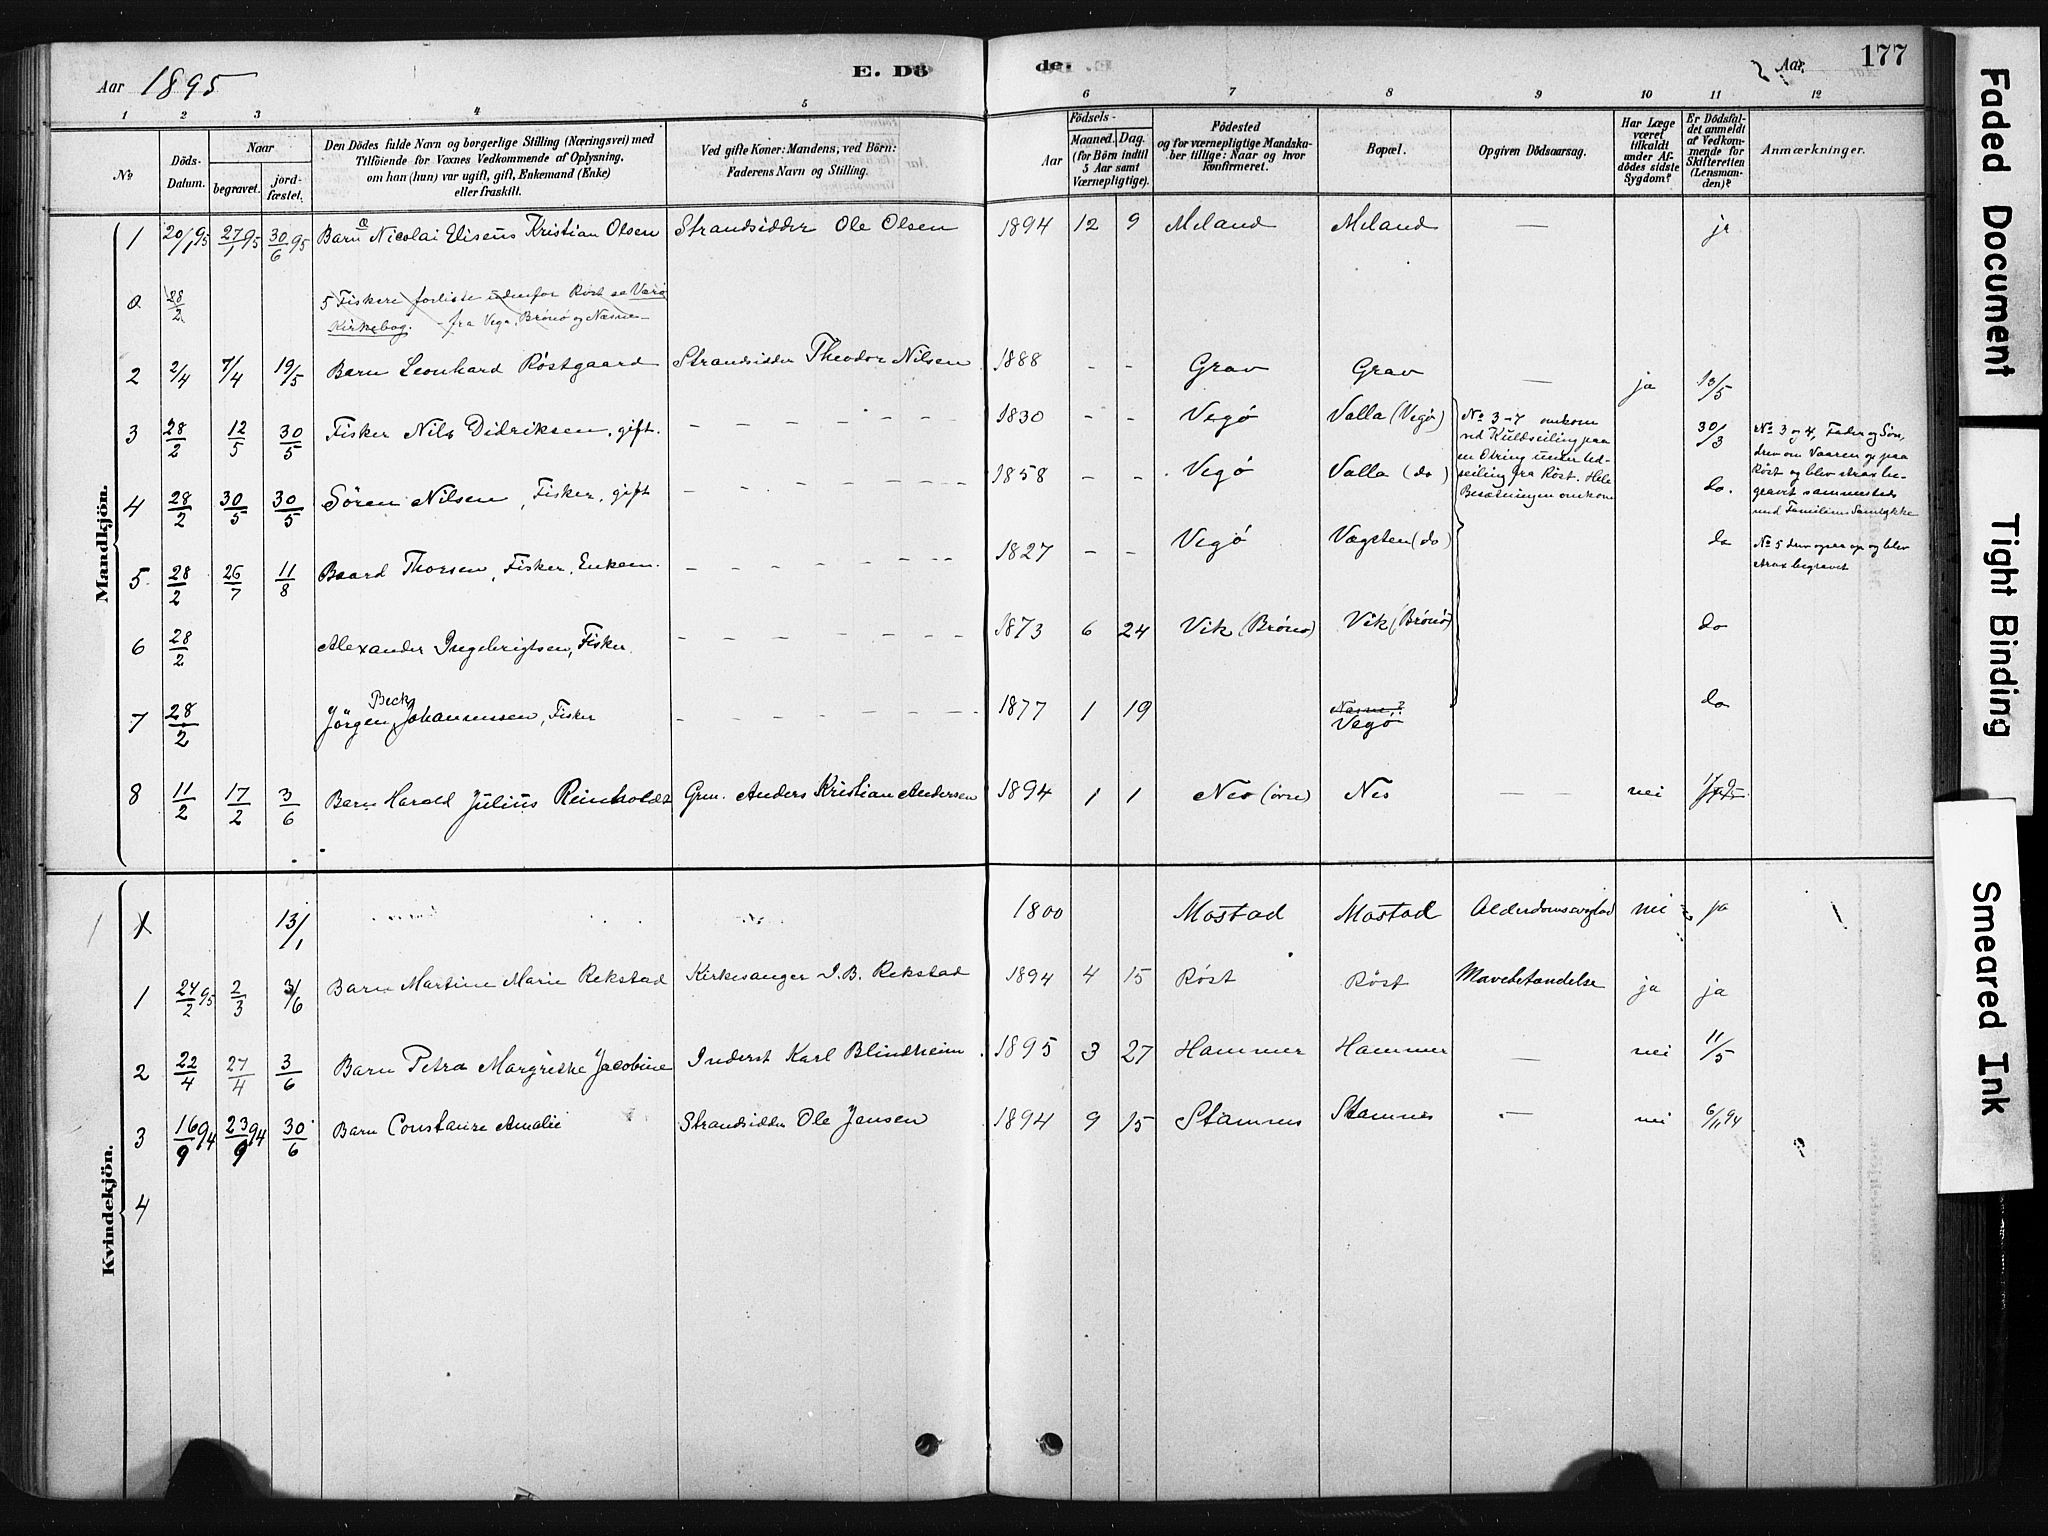 Aar 1895
E. Dö
de.
Aar
177
1 2 3 4 5 6 7 8 9 10 11 12
No
Döds-
Datum.
Naar
begravet.
jord-
fæstet.
Den Dödes fulde Navn og borgerlige Stilling (Næringsvei) med
Tilföiende for Voxnes Vedkommende af Oplysning,
om han (hun) var ugift, gift, Enkemand (Enke)
eller fraskilt.
Ved gifte Koner: Mandens; ved Börn:
Faderens Navn og Stilling.
Födsels-
Aar
Maaned. Dag.
(for Börn indtil
5 Aar samt
Værnepligtige).
Födested
og for værnepligtige Mandska-
ber tillige: Naar og hvor
konfirmeret.
Bopæl.
Opgiven Dödsaarsag.
Har Læge
været
tilkaldt
under Af-
dödes sidste
Sygdom?
Er Dödsfal-
det anmeldt
af Vedkom-
mende for
Skifteretten
(Lensman-
den)?
Anmærkninger.
Mandkjön.
1 20/1 95 27/1 95 30/6 95 Barn Nicolai Eliseus Kristian Olsen Strandsidder Ole Olsen 1894 12 9 Meland Meland — ja
28/2 5 Fiskere forliste udenfor Röst se Værö
Kirkebog. - fra Vega, Brönö og Næsne
2 2/4 7/4 19/5 Barn Leonhard Röstgaard Strandsidder Theodor Nilsen 1888 - - Grav Grav — ja 13/5
3 28/2 12/5 30/5 Fisker Nils Didriksen, gift. 1830 - - Vegö Valla (Vegö) 30/3
No 3-7 omkom
ved Kuldseiling paa
en Otring under Ud-
seiling fra Röst. Hele
Besætningen omkom
No 3 og 4, Fader og Sön,
drev om Vaaren op paa
Röst og blev strax be-
gravet sammesteds
med Familiens Samtykke
4 28/2 30/5 30/5 Sören Nilsen, Fisker, gift 1858 - - Vegö Valla (do) do.
5. 28/2 26/7 11/8 Baard Thorsen, Fisker, Enkem. 1827 - - Vegö Vægsten (do) do
No 5 drev ogsaa op og blev
strax begravet
6 28/2 Alexander Ingebrigtsen, Fisker. 1873 6 24 Vik (Brönö) Vik (Brönö) do
7 28/2 Jörgen Beck Johannessen, Fisker 1877 1 19 Næsne? Vegö do
8 11/2 17/2 3/6 Barn Harald Julius Reinholdt Grm. Anders Kristian Andersen 1894 1 1 Nes (övre) Nes — nei
Kvindekjön.
13/1 1800 Mostad Mostad nei ja
1 24/2 95 2/3 3/6 Barn Martine Marie Rekstad Kirkesanger I. B. Rekstad 1894 4 15 Röst Röst Mavebetændelse ja ja
2 22/4 27/4 3/6 Barn Petra Margrethe Jacobine Inderst Karl Blindheim 1895 3 27 Hammer Hammer — nei 11/5
3 16/9 94 23/9 94 30/6 Barn Constance Amalie Strandsidder Ole Jensen 1894 9 15 Stamnes Stamnes — nei 6/11 94
4
Faded Document
Tight Binding
Smeared Ink